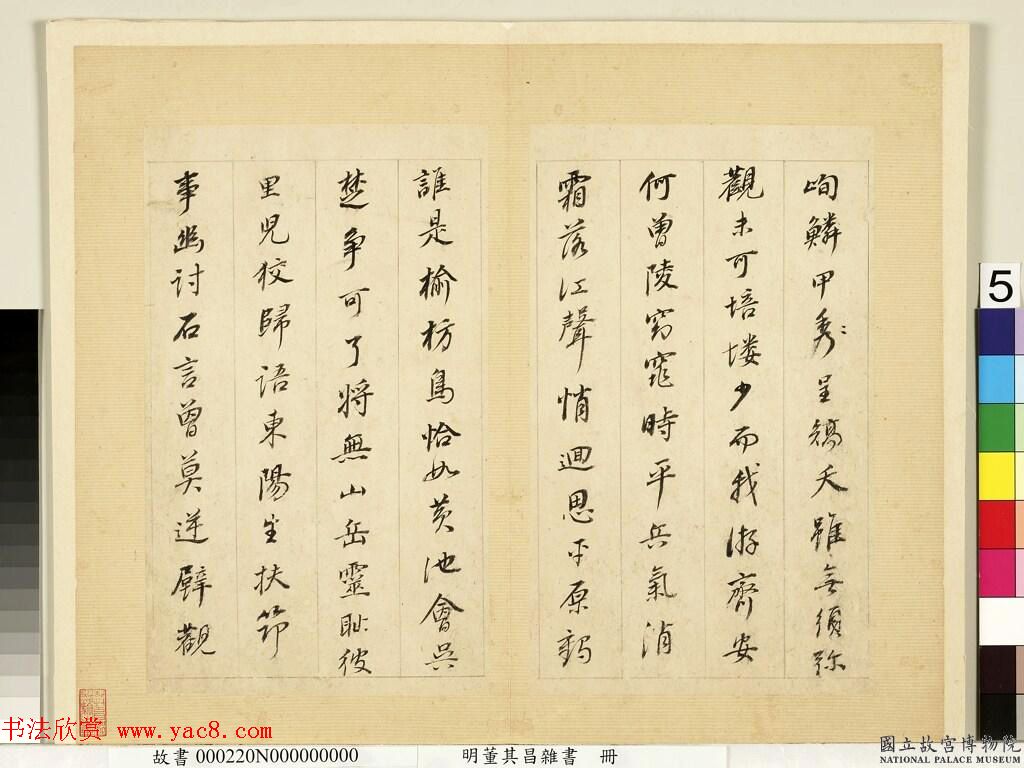 峋鱗甲秀〻呈矯夭雖無須弥
觀未可培塿少而我游齊安
何曾陵窈窕時平兵氣消
霜落江聲悄迴思平原
誰是榆枋鳥恰如黃池會吳
楚爭可了將無山岳靈耻彼
里兒狡歸語東陽生扶筇
事幽討石言曾莫逆壁觀
5
书法欣赏 www.yac8.com
故書 000220N000000000 明董其昌雜書 冊
國立故宮博物院
NATIONAL PALACE MUSEUM